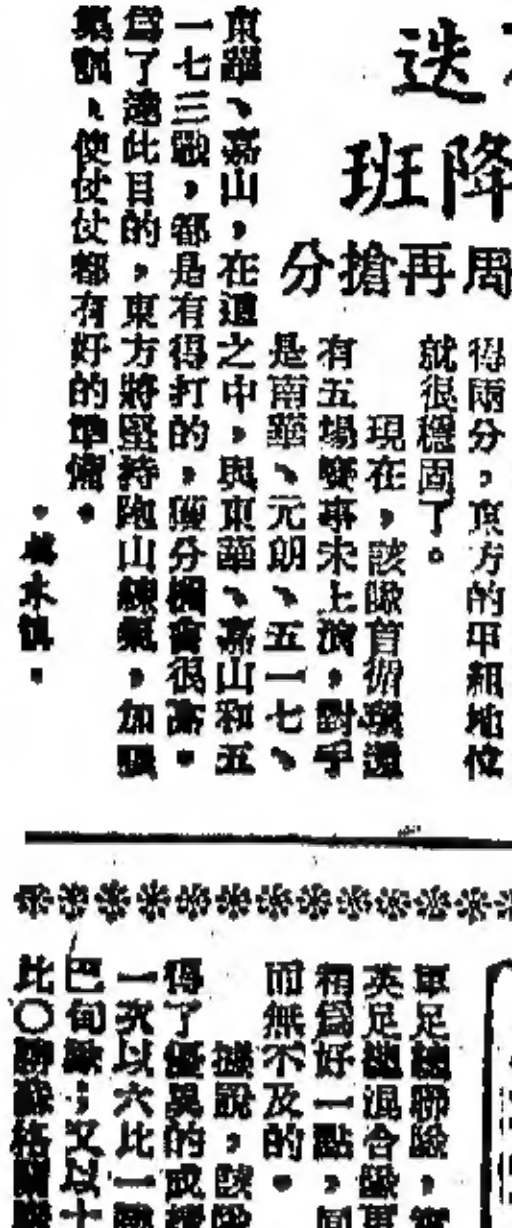 迭
班降
分搶再周
得兩分，東方的甲組地位
就很穩固了。
現在，該隊首循環還
有五場賽事未上演，對手
是南華、元朗、五一七、
東華、嘉山，在這之中，與東華、嘉山和五
一七三戰，都是有得打的，獲分機會很高。
爲了達此目的，東方將堅持跑山練氣，加緊
集訓、使仗仗都有好的準備。
軍足總聯隊，
英足總混合隊
稍爲好一點，
而無不及的。
據說，該隊
得了優異的成績
一次以六比一勝
巴甸隊；又以十
比○勝蘇格蘭聯